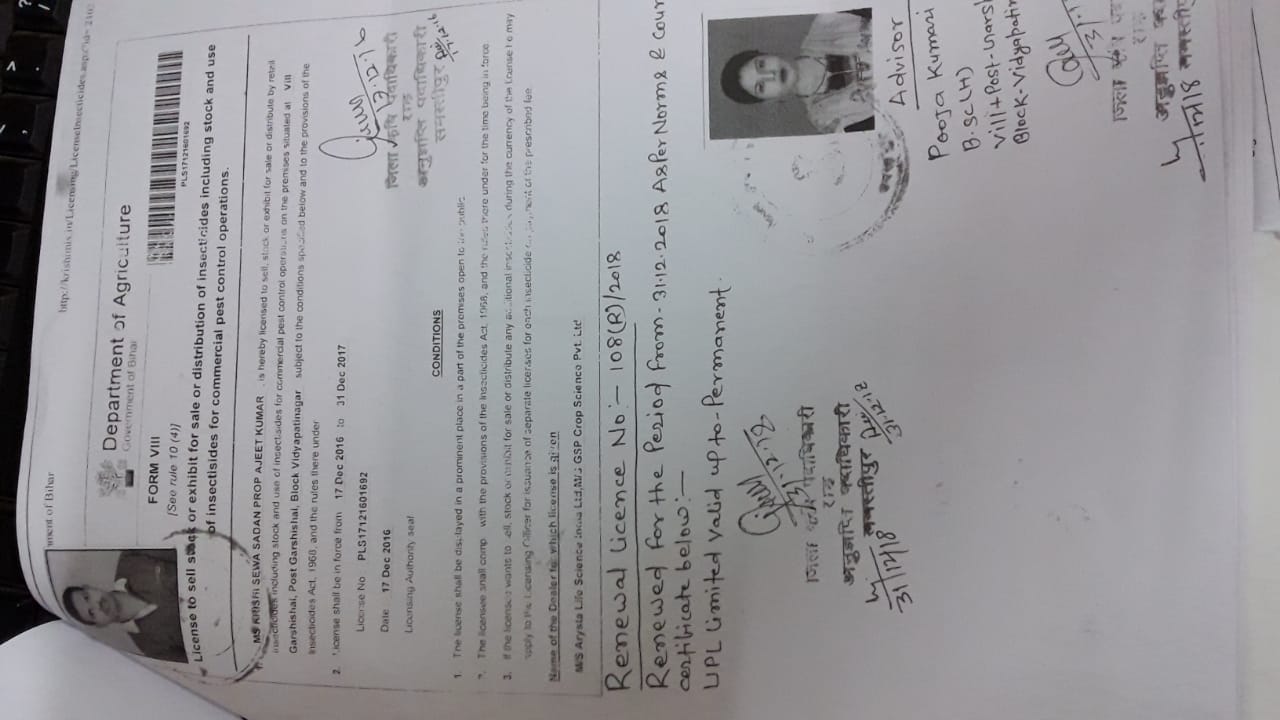 ment of Bihar
http://krishonix.in/Licensing/LicenseInsecticides.aspx?id=
Department of Agriculture
Government of Bihar
PLS17121601692
FORM VIII
[See rule 10 (4)]
License to sell stock or exhibit for sale or distribution of insecticides including stock and use
of insectisides for commercial pest control operations.
MS KRISHI SEWA SADAN PROP AJEET KUMAR , is hereby licensed to sell, stock or exhibit for sale or distribute by retail
insecticides including stock and use of insectisides for commercial pest control operations on the premises situated at Vill
Garshishai, Post Garshishai, Block Vidyapatinagar subject to the conditions specified below and to the provisions of the
Insecticides Act, 1968, and the rules there under
2. License shall be in force from 17 Dec 2016 to 31 Dec 2017
License No PLS17121601692
Date 17 Dec 2016
Licensing Authority seal
17.12.16
जिला कृषि पदाधिकारी
सह
अनुज्ञप्ति पदाधिकारी
समस्तीपुर
CONDITIONS
1. The license shall be displayed in a prominent place in a part of the premises open to the public.
2. The licensee shall comp with the provisions of the Insecticides Act, 1968, and the rules there under for the time being in force.
3. If the licensee wants to sell, stock or exhibit for sale or distribute any additional insecticides during the currency of the license he may
apply to the Licensing Officer for issuance of separate licenses for each insecticide on payment of the prescribed fee
Name of the Dealer for which license is given
M/S Arysta Life Science India Ltd,M/S GSP Crop Science Pvt. Ltd
Renewal Licence No:- 108(R)/2018
Renewed for the Period from - 31.12.2018 As Per Norms & Cour
certificate below:-
UPL Limited Valid up to-Permanent.
31.12.18
जिला कृषि पदाधिकारी
सह
अनुज्ञप्ति पदाधिकारी
समस्तीपुर
31.12.18
31/12/18
Advisor
Pooja Kumari
B.Sc(H)
Vill+Post-Garsh
Block-Vidyapatin
जिला कृषि पद
अनुज्ञप्ति पदा
समस्तीपु